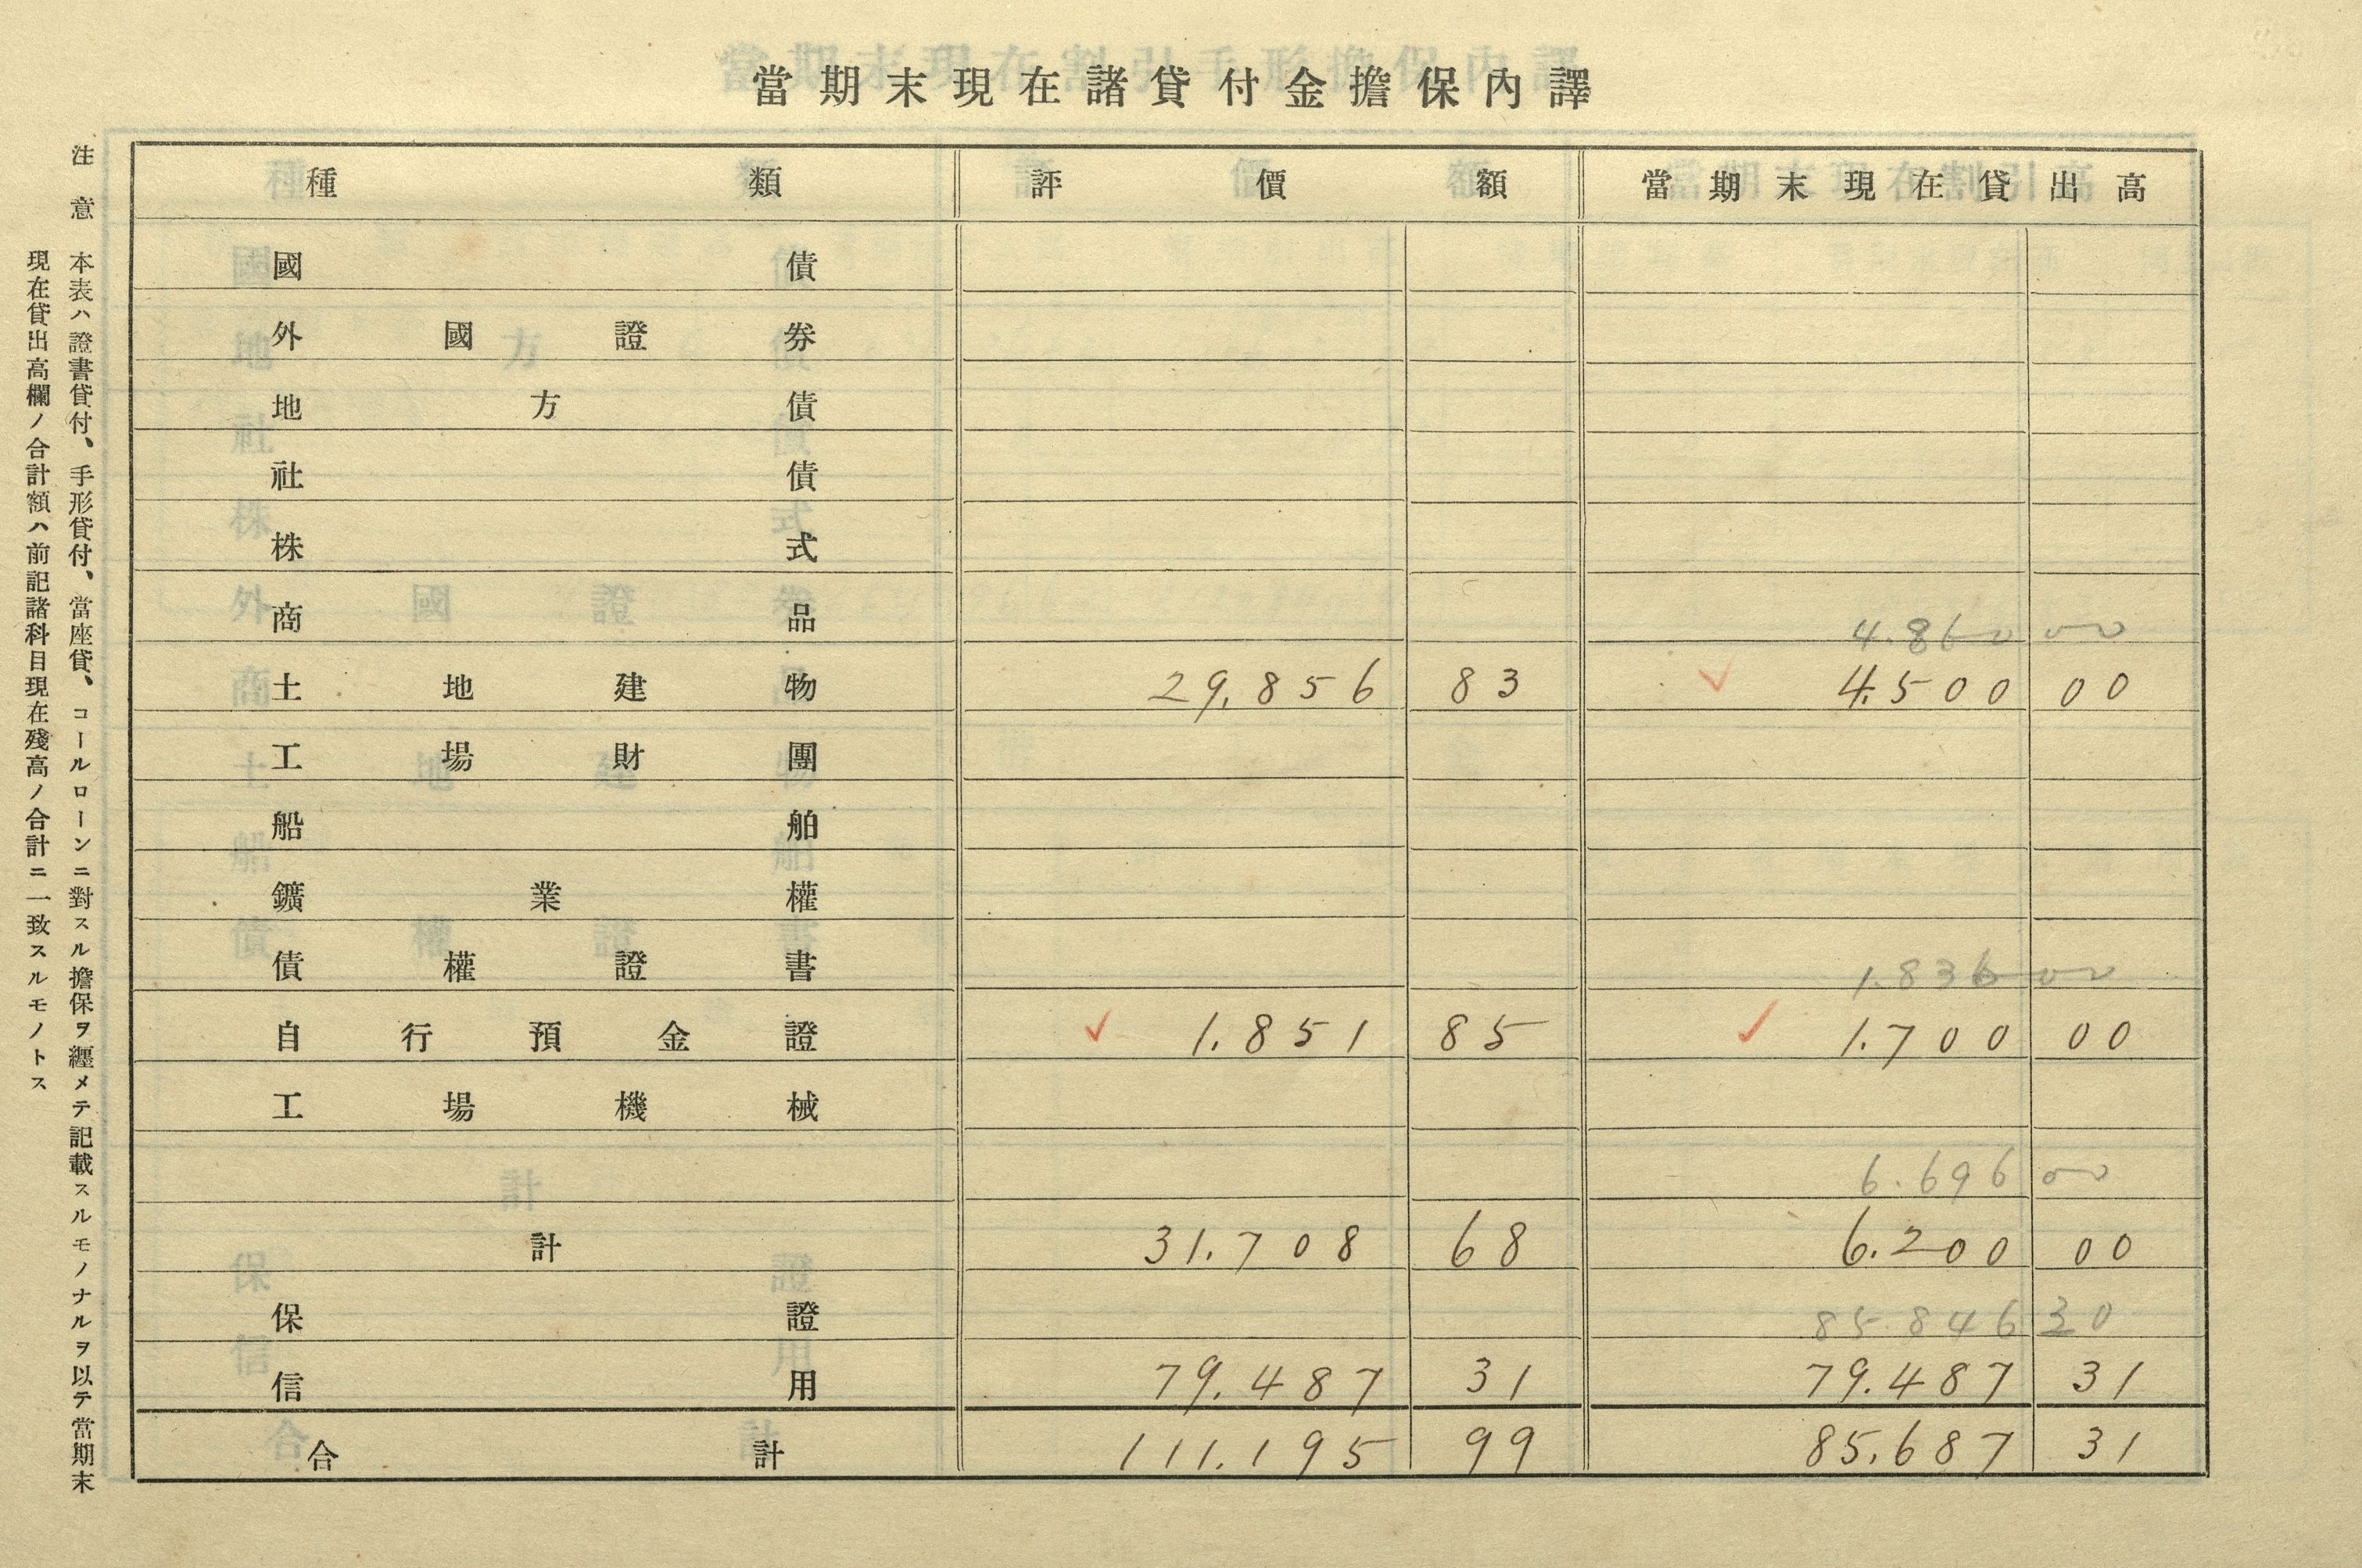 當期末現在諸貸付金擔保內譯
種類 評價額 當期末現在貸出高
國債
外國證券
地方債
社債
株式
商品 4.860 00
土地建物 29,856 83 4.500 00
工場財團
船舶
鑛業權
債權證書 1.836 00
自行預金證 1.851 85 1.700 00
工場機械
6.696 00
計 31.708 68 6.200 00
保證 85.846 30
信用 79.487 31 79.487 31
合計 111.195 99 85.687 31
注意 本表ハ證書貸付、手形貸付、當座貸、コールローンニ對スル擔保ヲ纒メテ記載スルモノナルヲ以テ當期末
現在貸出高欄ノ合計額ハ前記諸科目現在殘高ノ合計ニ一致スルモノトス